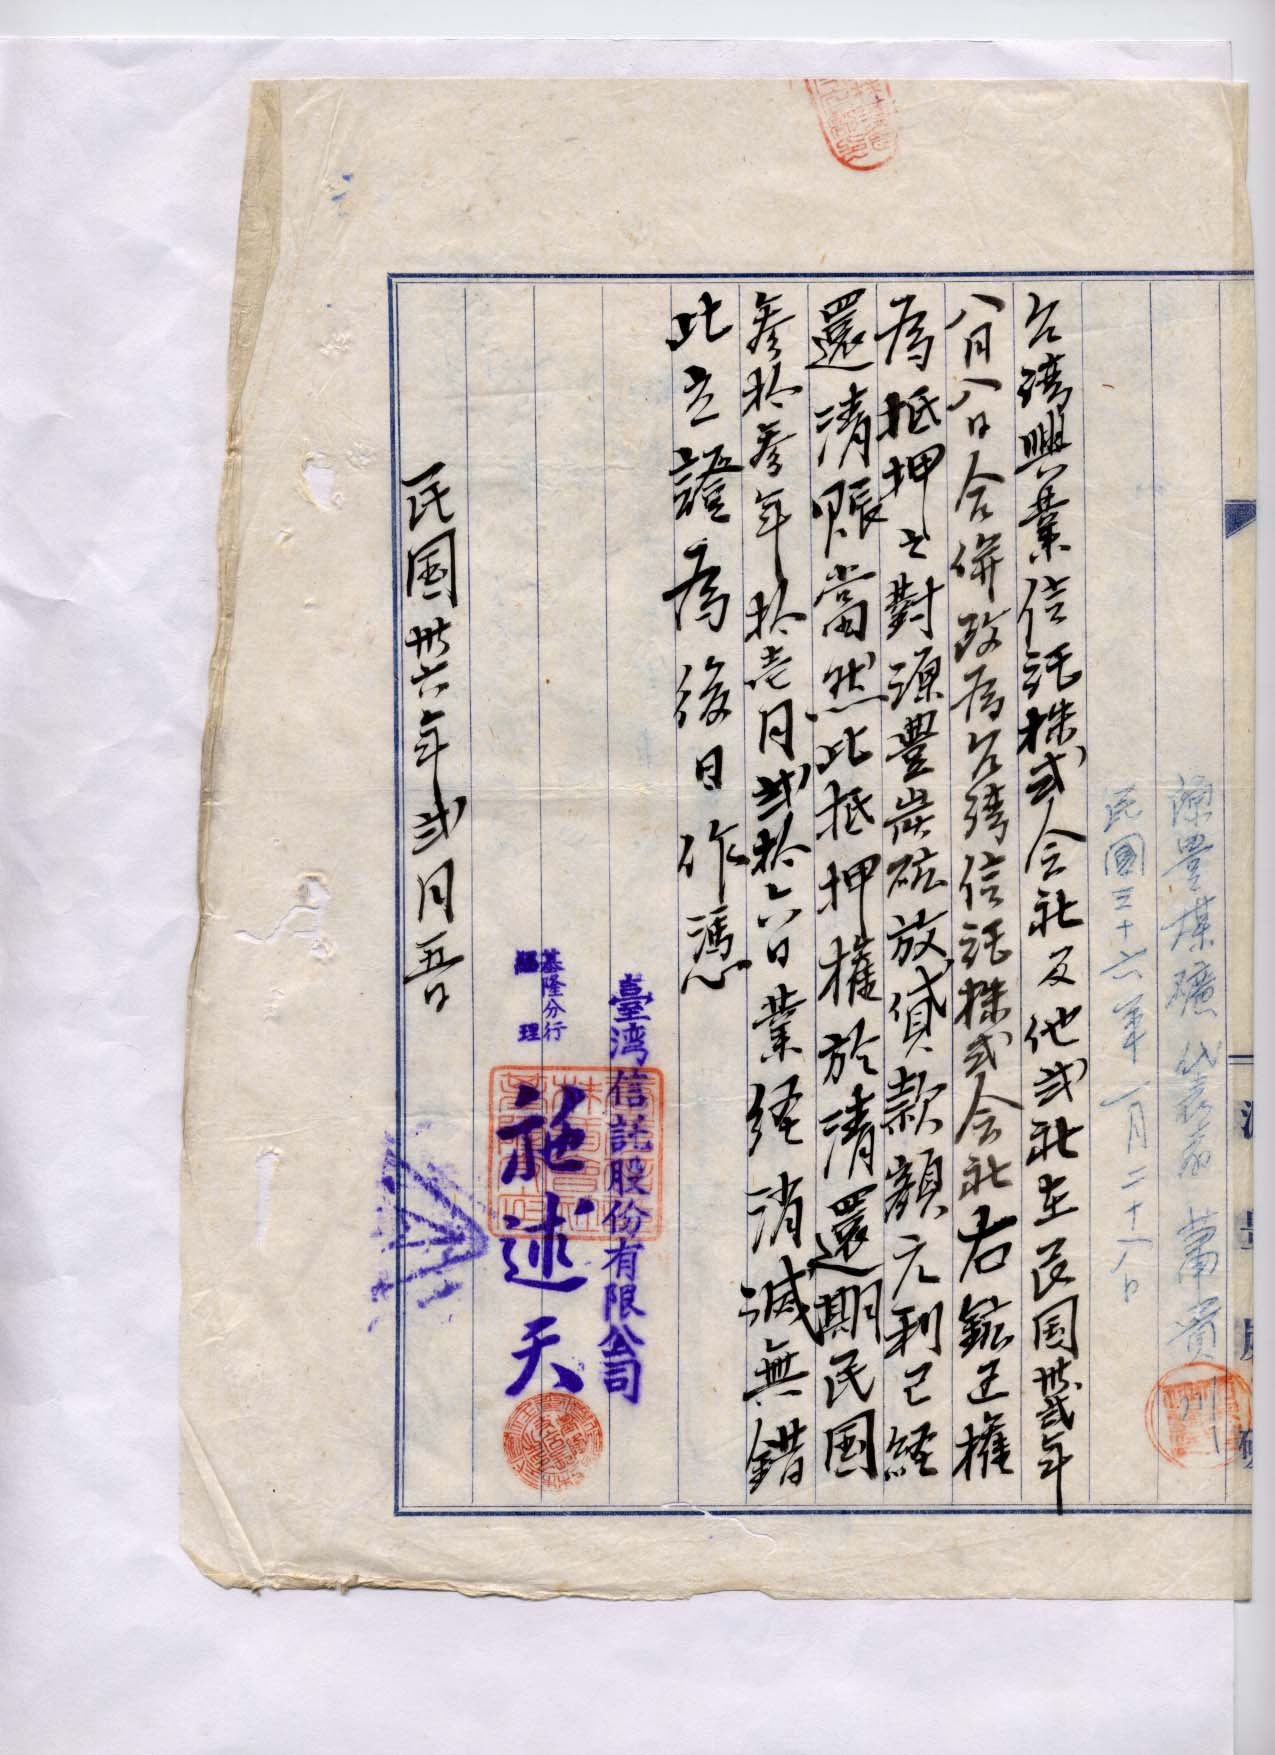 源豊煤礦代表者 蕭賞
民國三十六年一月二十八日
台湾興業信託株式会社及他弐社在民国卅弐年
八月八日合併改為台湾信託株式会社右鉱工権
為抵押之對源豊炭砿放貸款額元利已経
還清賬當然此抵押權於清還期民国
叁拾叁年拾壱月弐拾六日業経消滅無錯
此立證為後日作馮
臺湾信託股份有限公司
基隆分行
經理
施述天
民国卅六年弐月五日